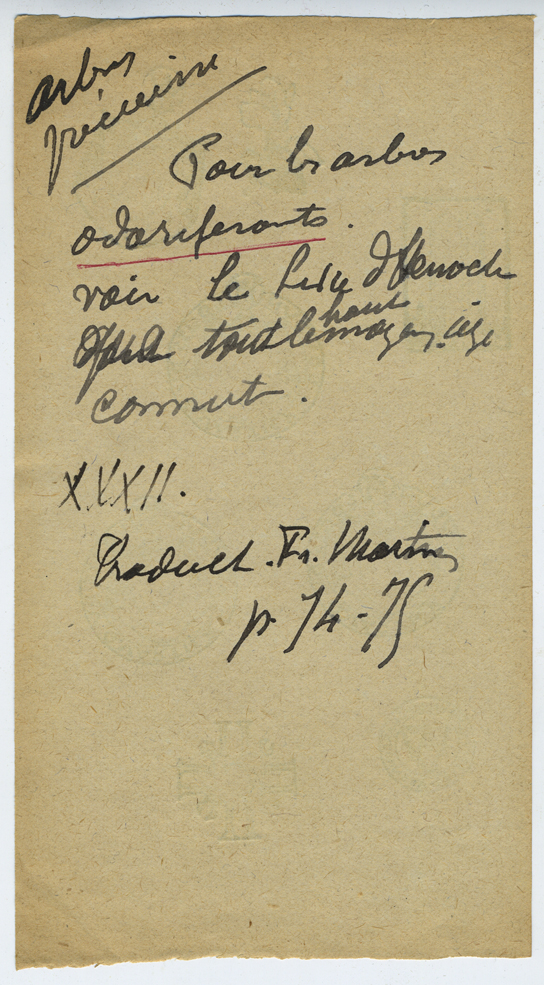 arbres
précieux
Pour les arbres
odoriferants.
voir le livre d'Henoch
que tout le haut moyen age
connut.
XXXII.
Traduct. Fr. Martin
p. 74-75